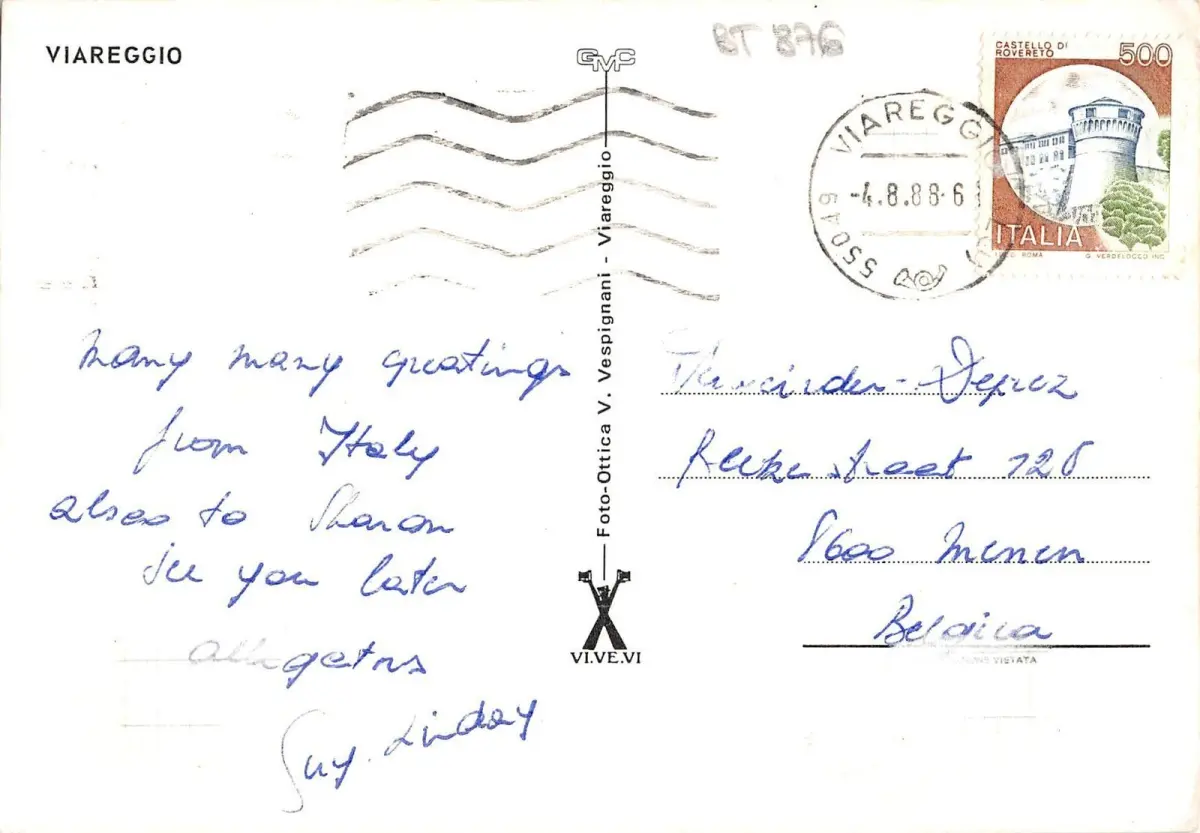 VIAREGGIO
GMC
BT 876
CASTELLO DI
ROVERETO
500
ITALIA
ROMA
G. VERDELOCCO INC.
VIAREGGIO
-4.8.88-6
55049
Foto-Ottica V. Vespignani - Viareggio
VI.VE.VI
many many greatings
from Italy
alsoo to Sharon
see you later
allagators
Guy. Linday
-Deprez
straat 126
8600 Menen
Belgica
VIETATA